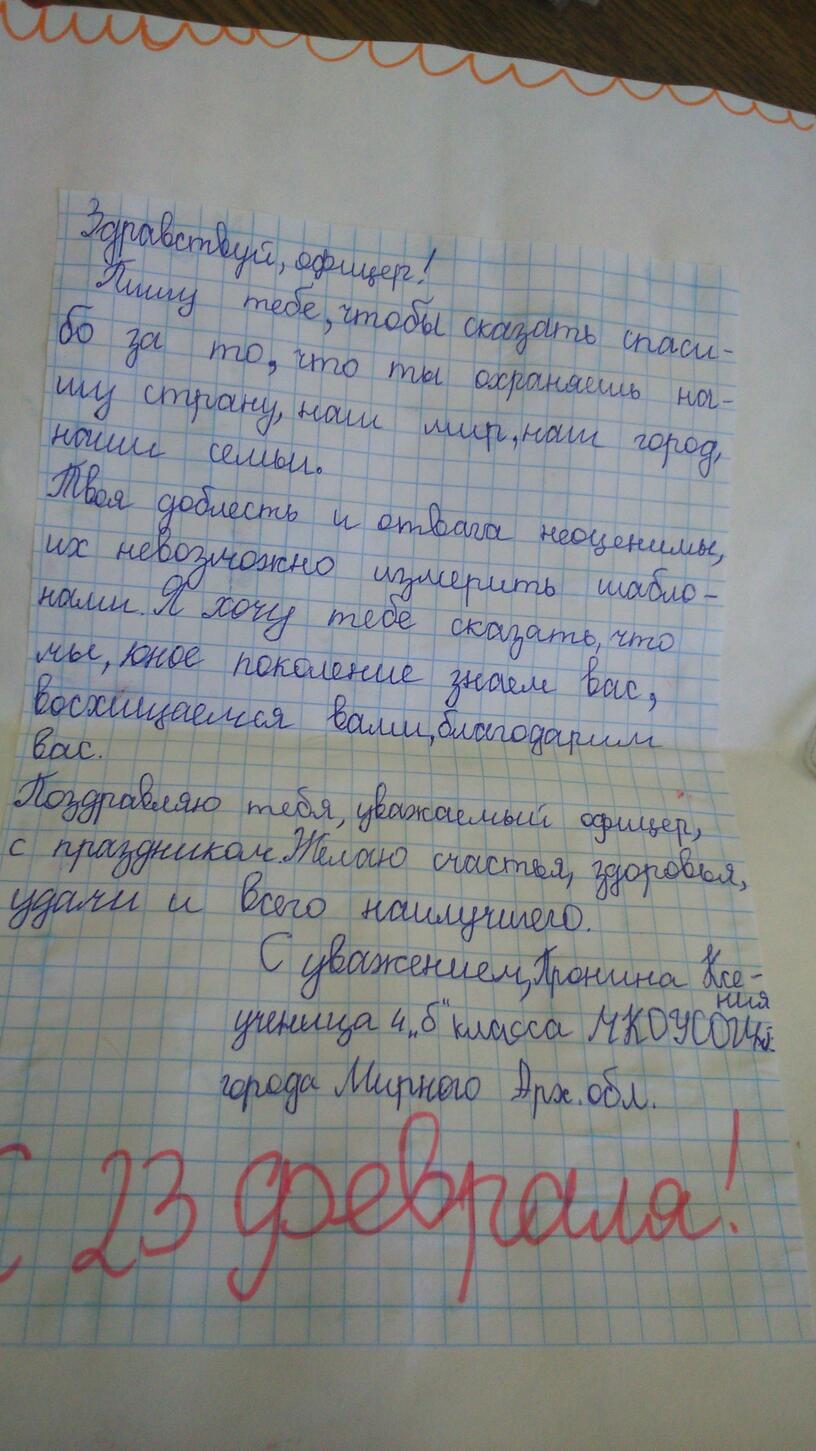 Здравствуй, офицер!
Пишу тебе, чтобы сказать спаси-
бо за то, что ты охраняешь на-
шу страну, наш мир, наш город,
наши семьи.
Твоя доблесть и отвага неоценимы,
их невозможно измерить шабло-
нами. Я хочу тебе сказать, что
мы, юное поколение знаем вас,
восхищаемся вами, благодарим
вас.
Поздравляю тебя, уважаемый офицер,
с праздником. Желаю счастья, здоровья,
удачи и всего наилучшего.
С уважением, Пронина Ксе-
ния
ученица 4 „б" класса МКОУСОШ
города Мирного Арх. обл.
С 23 февраля!